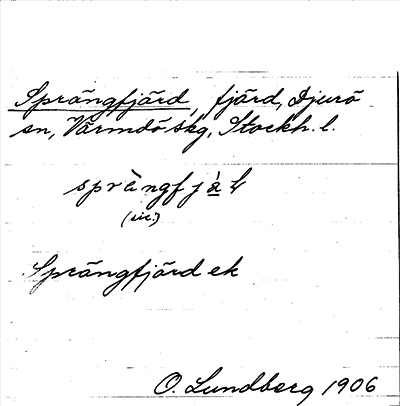 Sprängfjärd, fjärd, Djurö
sn, Värmdö skg, Stockh. l.
spràngfjà̲ꞎ
(sic.)
Sprängfjärd ek
O. Lundberg 1906